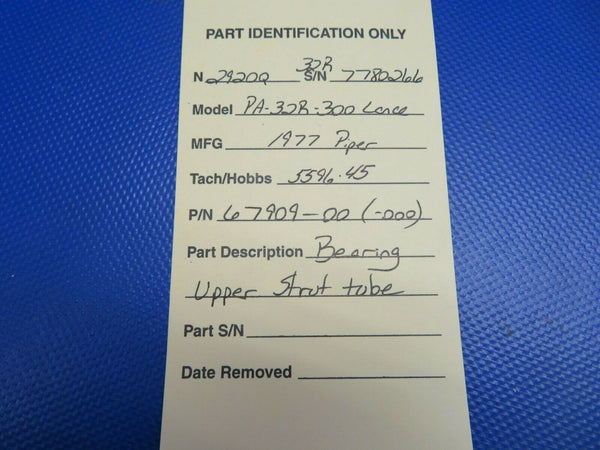 PART IDENTIFICATION ONLY
N 2920Q 32R S/N 7780266
Model PA-32R-300 Lance
MFG 1977 Piper
Tach/Hobbs 5596.45
P/N 67909-00 (-000)
Part Description Bearing
Upper Strut tube
Part S/N
Date Removed